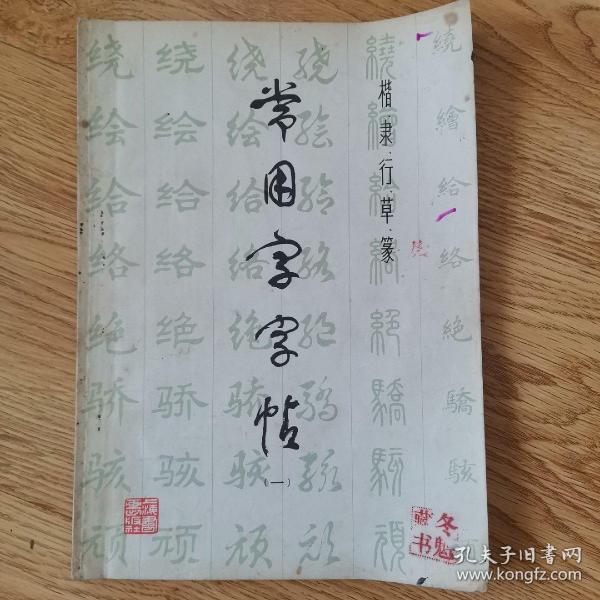 常用字字帖
(一)
楷·隶·行·草·篆
绕 绕 绕 绕 繞 繞
绘 绘 绘 绘 繪 繪
给 给 给 给 給 給
络 络 络 络 絡 絡
绝 绝 绝 绝 絕 絶
骄 骄 骄 骄 驕 驕
骇 骇 骇 骇 駭 駭
顽 顽 顽 顽 頑
上海书画社
冬魁
藏书
孔夫子旧书网
www.kongfz.com